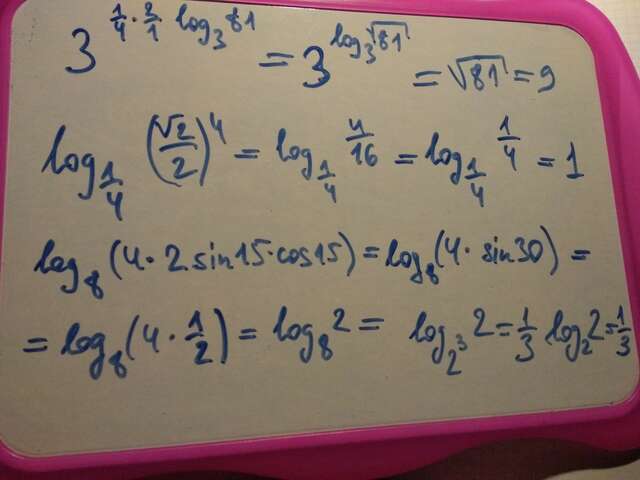 3^{\frac{1}{4} \cdot \frac{2}{1} \log_3 81} = 3^{\log_3 \sqrt{81}} = \sqrt{81} = 9
\log_{\frac{1}{4}} \left(\frac{\sqrt{2}}{2}\right)^4 = \log_{\frac{1}{4}} \frac{4}{16} = \log_{\frac{1}{4}} \frac{1}{4} = 1
\log_8 (4 \cdot 2 \sin 15 \cdot \cos 15) = \log_8 (4 \cdot \sin 30) =
= \log_8 (4 \cdot \frac{1}{2}) = \log_8 2 = \log_{2^3} 2 = \frac{1}{3} \cdot \log_2 2 = \frac{1}{3}